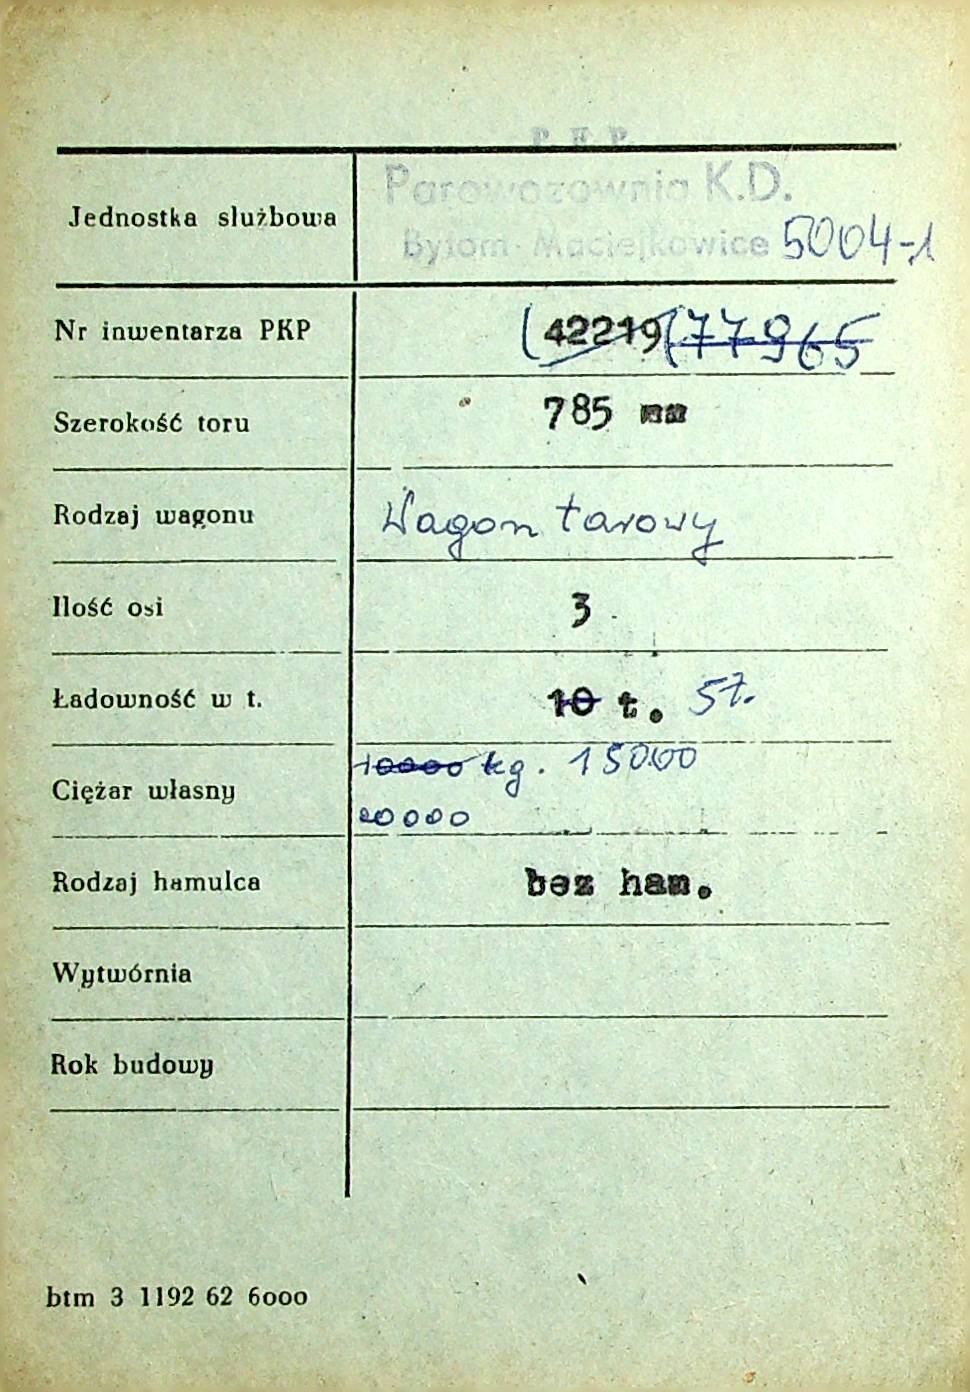 P. K. P.
Parowozownia K.D.
Jednostka służbowa
Bytom-Maciejkowice 5004-1
Nr inwentarza PKP (42219 (77965
Szerokość toru 785 mm
Rodzaj wagonu Wagon tarowy
Ilość osi 3
Ładowność w t. 10 t. 5t.
10000 kg. 15000
Ciężar własny
20000
Rodzaj hamulca bez ham.
Wytwórnia
Rok budowy
btm 3 1192 62 6000